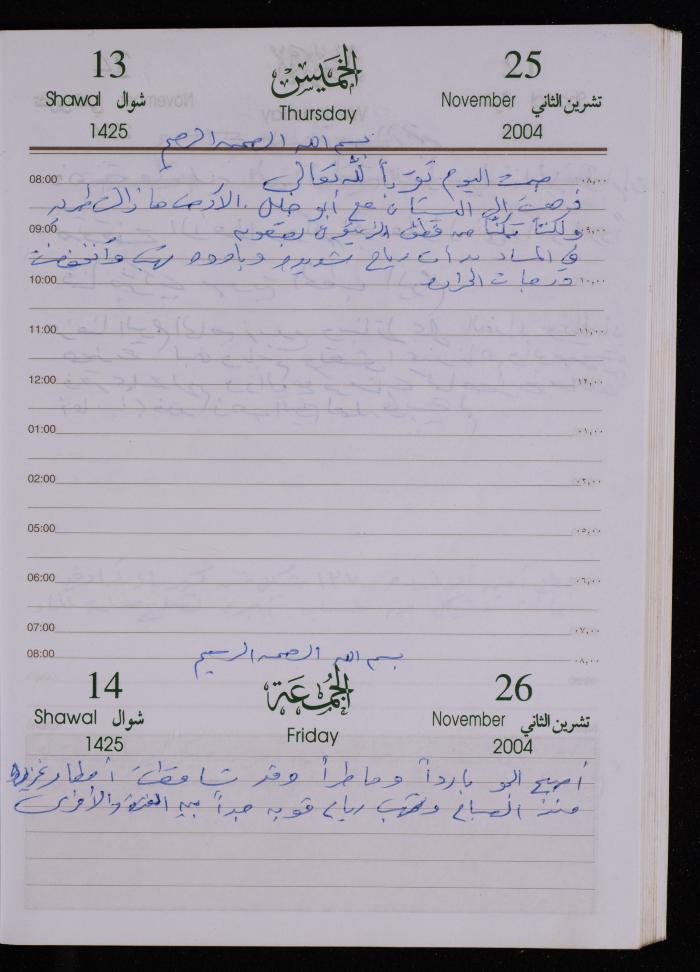 13 الخميس 25
Shawal شوال Thursday November تشرين الثاني
1425 2004
بسم الله الرحمن الرحيم
08:00 صمت اليوم تودداً لله تعالى ٠٨,٠٠
ذهبت إلى البستان مع أبو خليل. الأرض ما زالت طرية
09:00 ولكننا تمكنّا من قطف الزيتون بصعوبة ٠٩,٠٠
في المساء بدأت رياح شديدة وباردة تهب وانخفضت
10:00 درجات الحرارة ١٠,٠٠
11:00 ١١,٠٠
12:00 ١٢,٠٠
01:00 ٠١,٠٠
02:00 ٠٢,٠٠
05:00 ٠٥,٠٠
06:00 ٠٦,٠٠
07:00 ٠٧,٠٠
08:00 ٠٨,٠٠
بسم الله الرحمن الرحيم
14 الجمعة 26
Shawal شوال Friday November تشرين الثاني
1425 2004
أصبح الجو بارداً وماطراً وقد تساقطت أمطار غزيرة
منذ الصباح وتهب رياح قوية جداً بين الفينة والأخرى